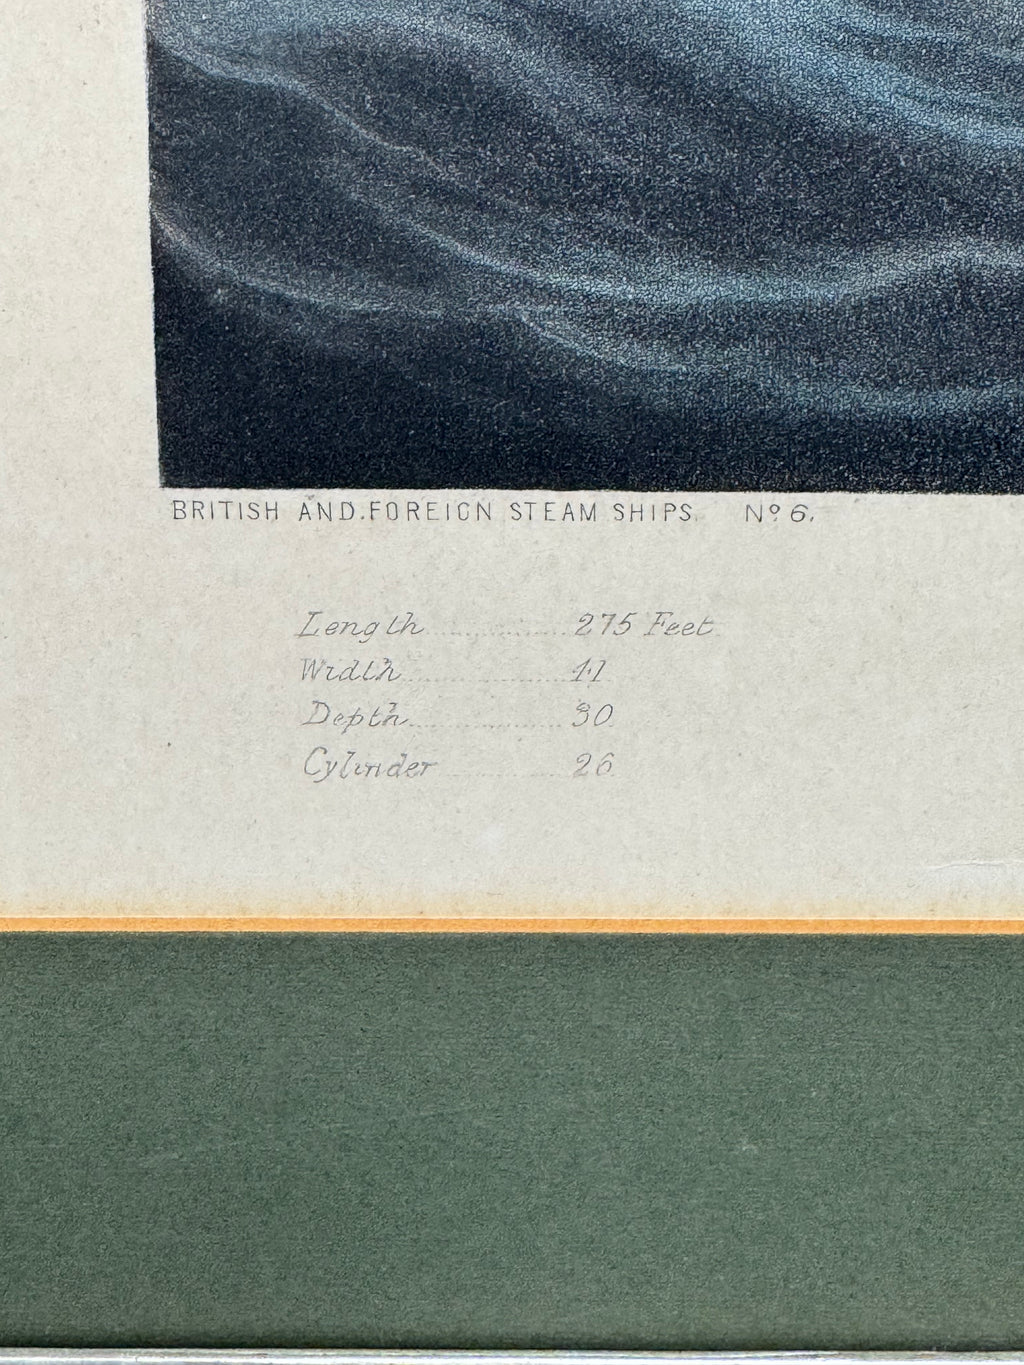 BRITISH AND FOREIGN STEAM SHIPS. Nº 6.
Length 275 Feet
Width 41
Depth 30
Cylinder 26